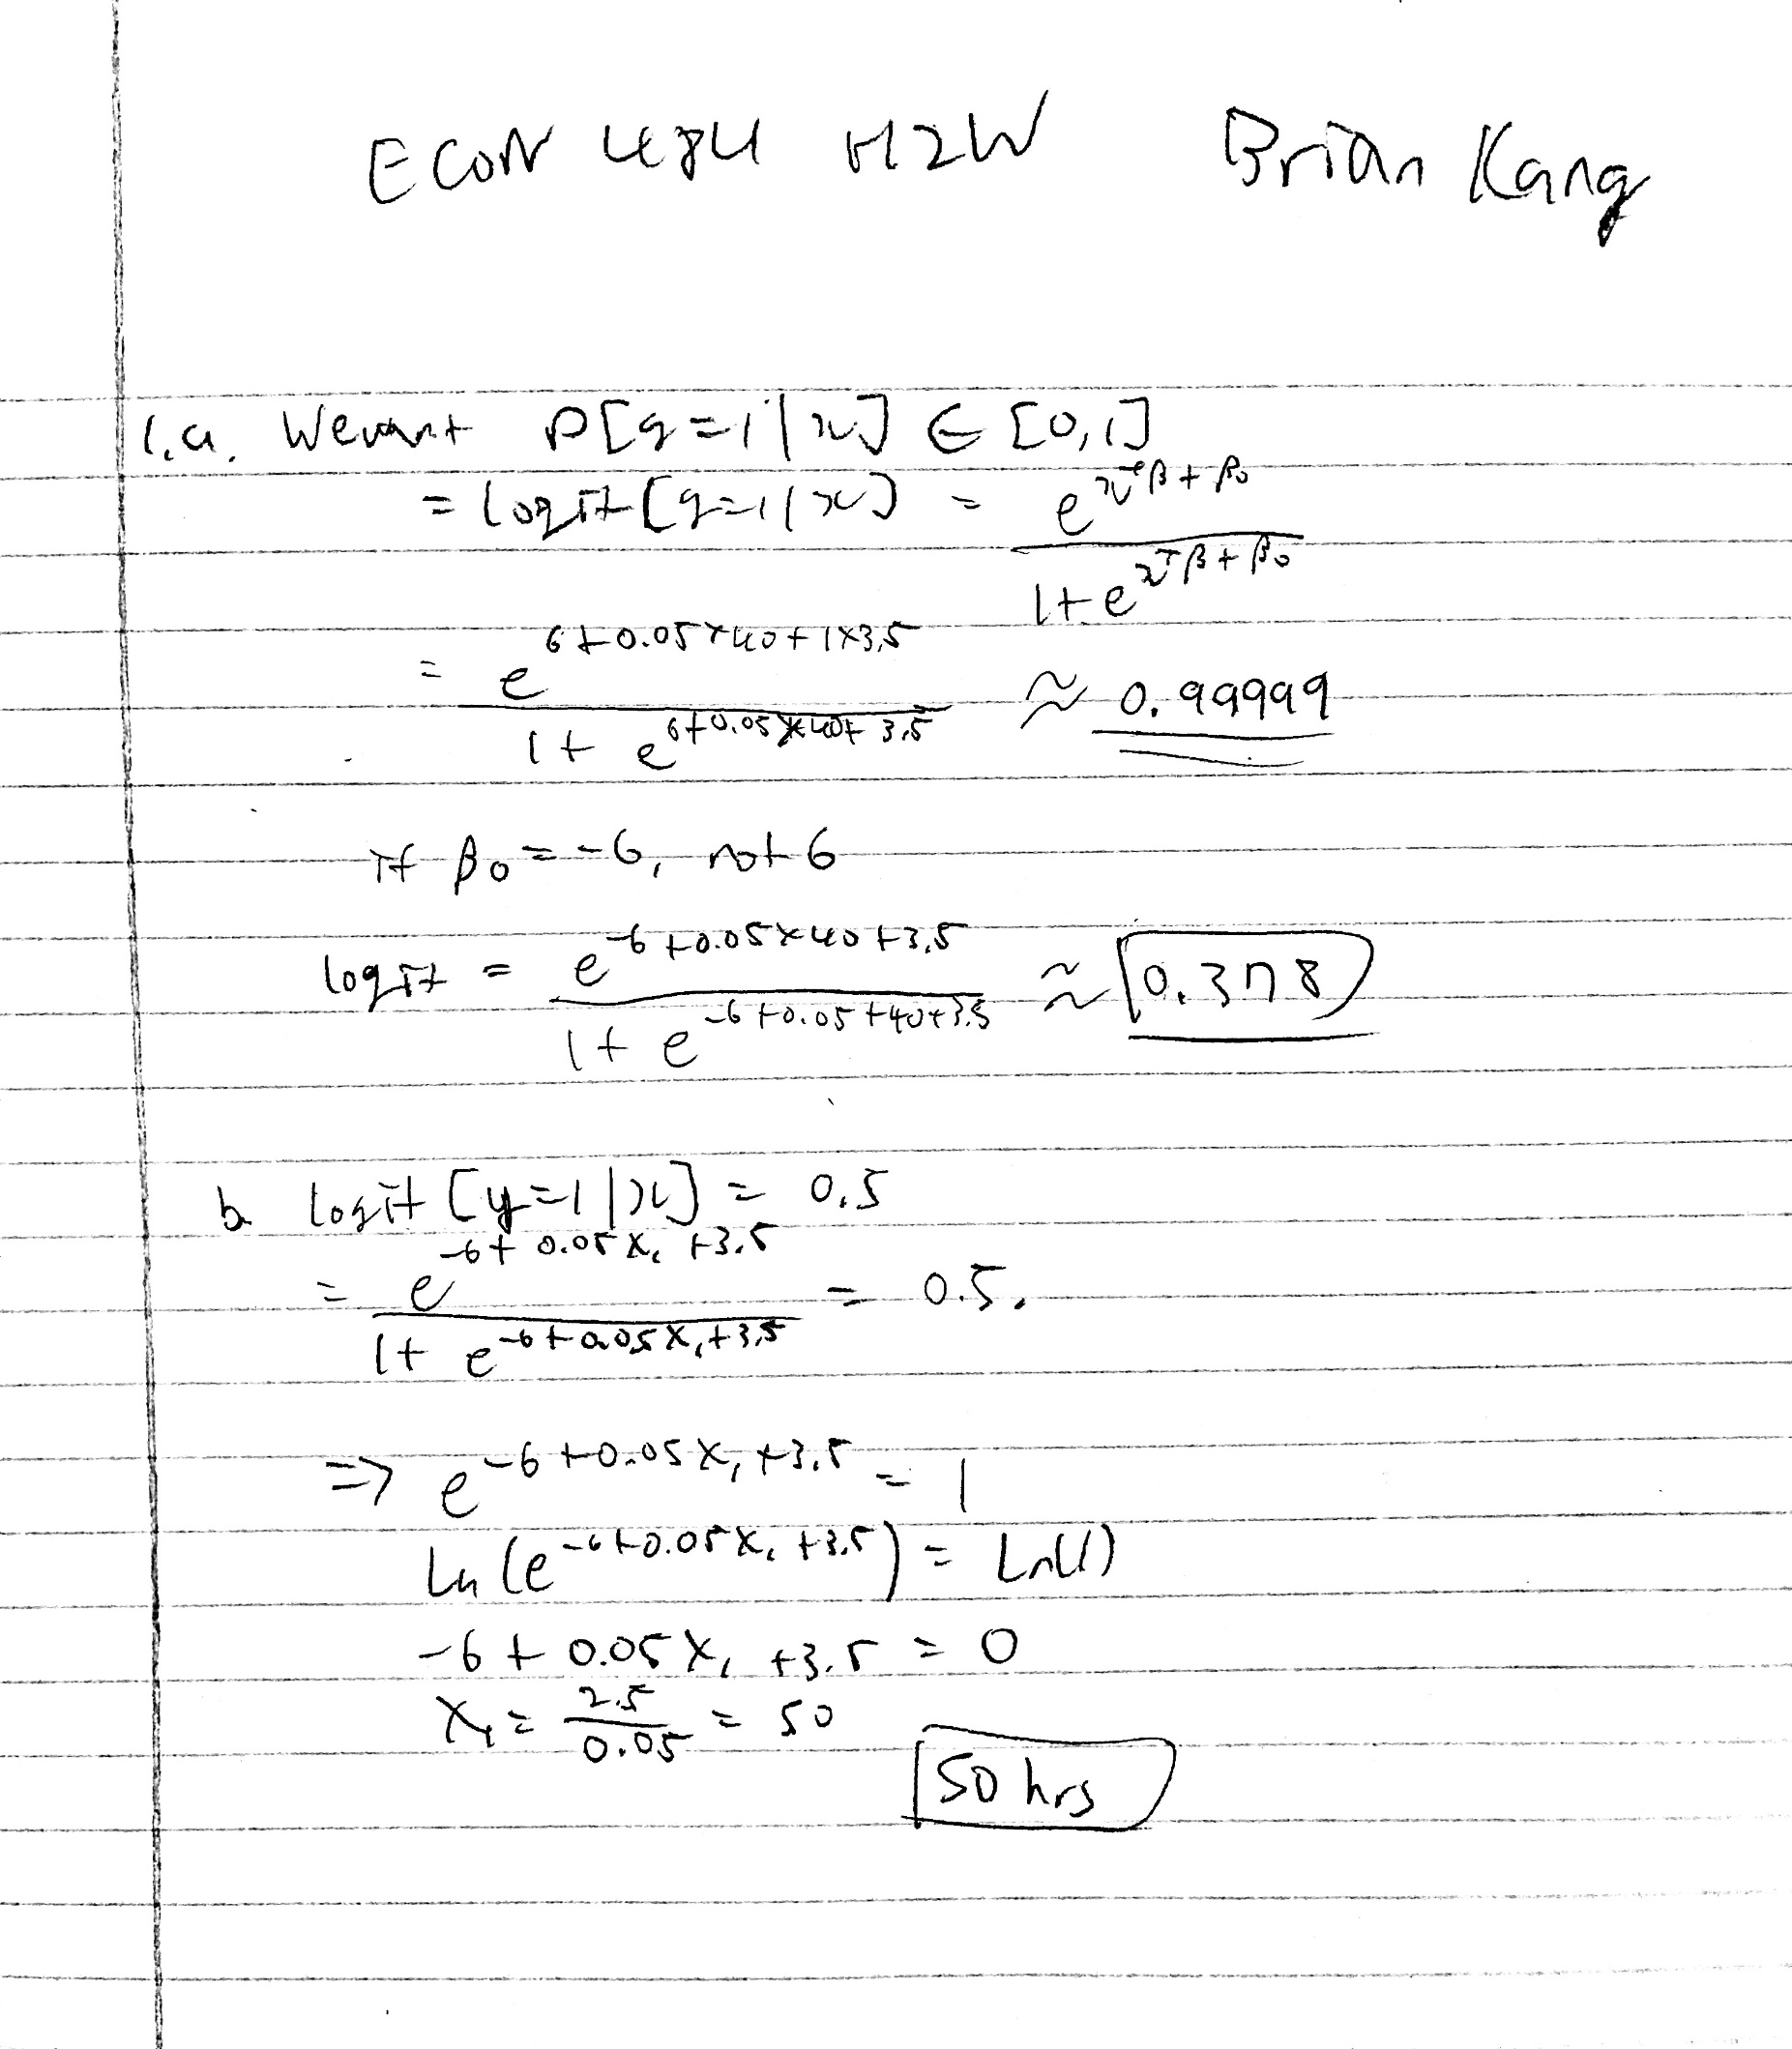 ECON 484 H2W Brian Kang
1.a. We want P[y=1|x] ∈ [0,1]
= logit[y=1|x] = e^{x^Tβ+β₀} / 1+e^{x^Tβ+β₀}
= e^{6+0.05×40+1×3.5} / 1+e^{6+0.05×40+3.5} ≈ 0.99999
if β₀=-6, not 6
logit = e^{-6+0.05×40+3.5} / 1+e^{-6+0.05+40+3.5} ≈ 0.378
b. logit[y=1|x] = 0.5
= e^{-6+0.05X₁+3.5} / 1+e^{-6+0.05X₁+3.5} = 0.5.
=> e^{-6+0.05X₁+3.5} = 1
Ln(e^{-6+0.05X₁+3.5}) = Ln(1)
-6+0.05X₁+3.5 = 0
X₁ = 2.5/0.05 = 50
50 hrs